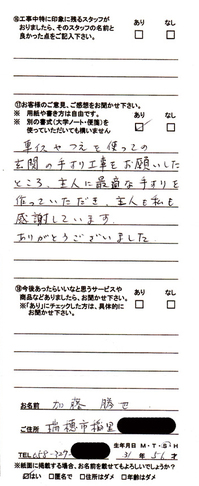 ⑯工事中特に印象に残るスタッフが
おりましたら、そのスタッフの名前と
良かった点をご記入下さい。
あり なし
⑰お客様のご意見、ご感想をお聞かせ下さい。
※ 用紙や書き方は自由です。
※ 別の書式(大学ノート・便箋)を
使っていただいても構いません
あり なし
車イスやつえを使っての
玄関の手すり工事をお願いした
ところ、主人に最適な手すりを
作っていただき、主人も私も
感謝しています。
ありがとうございました。
⑱今後あったらいいなと思うサービスや
商品などありましたら、お聞かせ下さい。
※「あり」にチェックした方は、具体的に
お聞かせ下さい
あり なし
お名前 加藤 勝
ご住所 瑞穂市
生年月日 M・T・S・H
TEL 058-327- 31年 51才
※紙面に掲載する場合、お名前を載せてもよろしいでしょうか?
はい □匿名で □住所はダメ □年齢はダメ